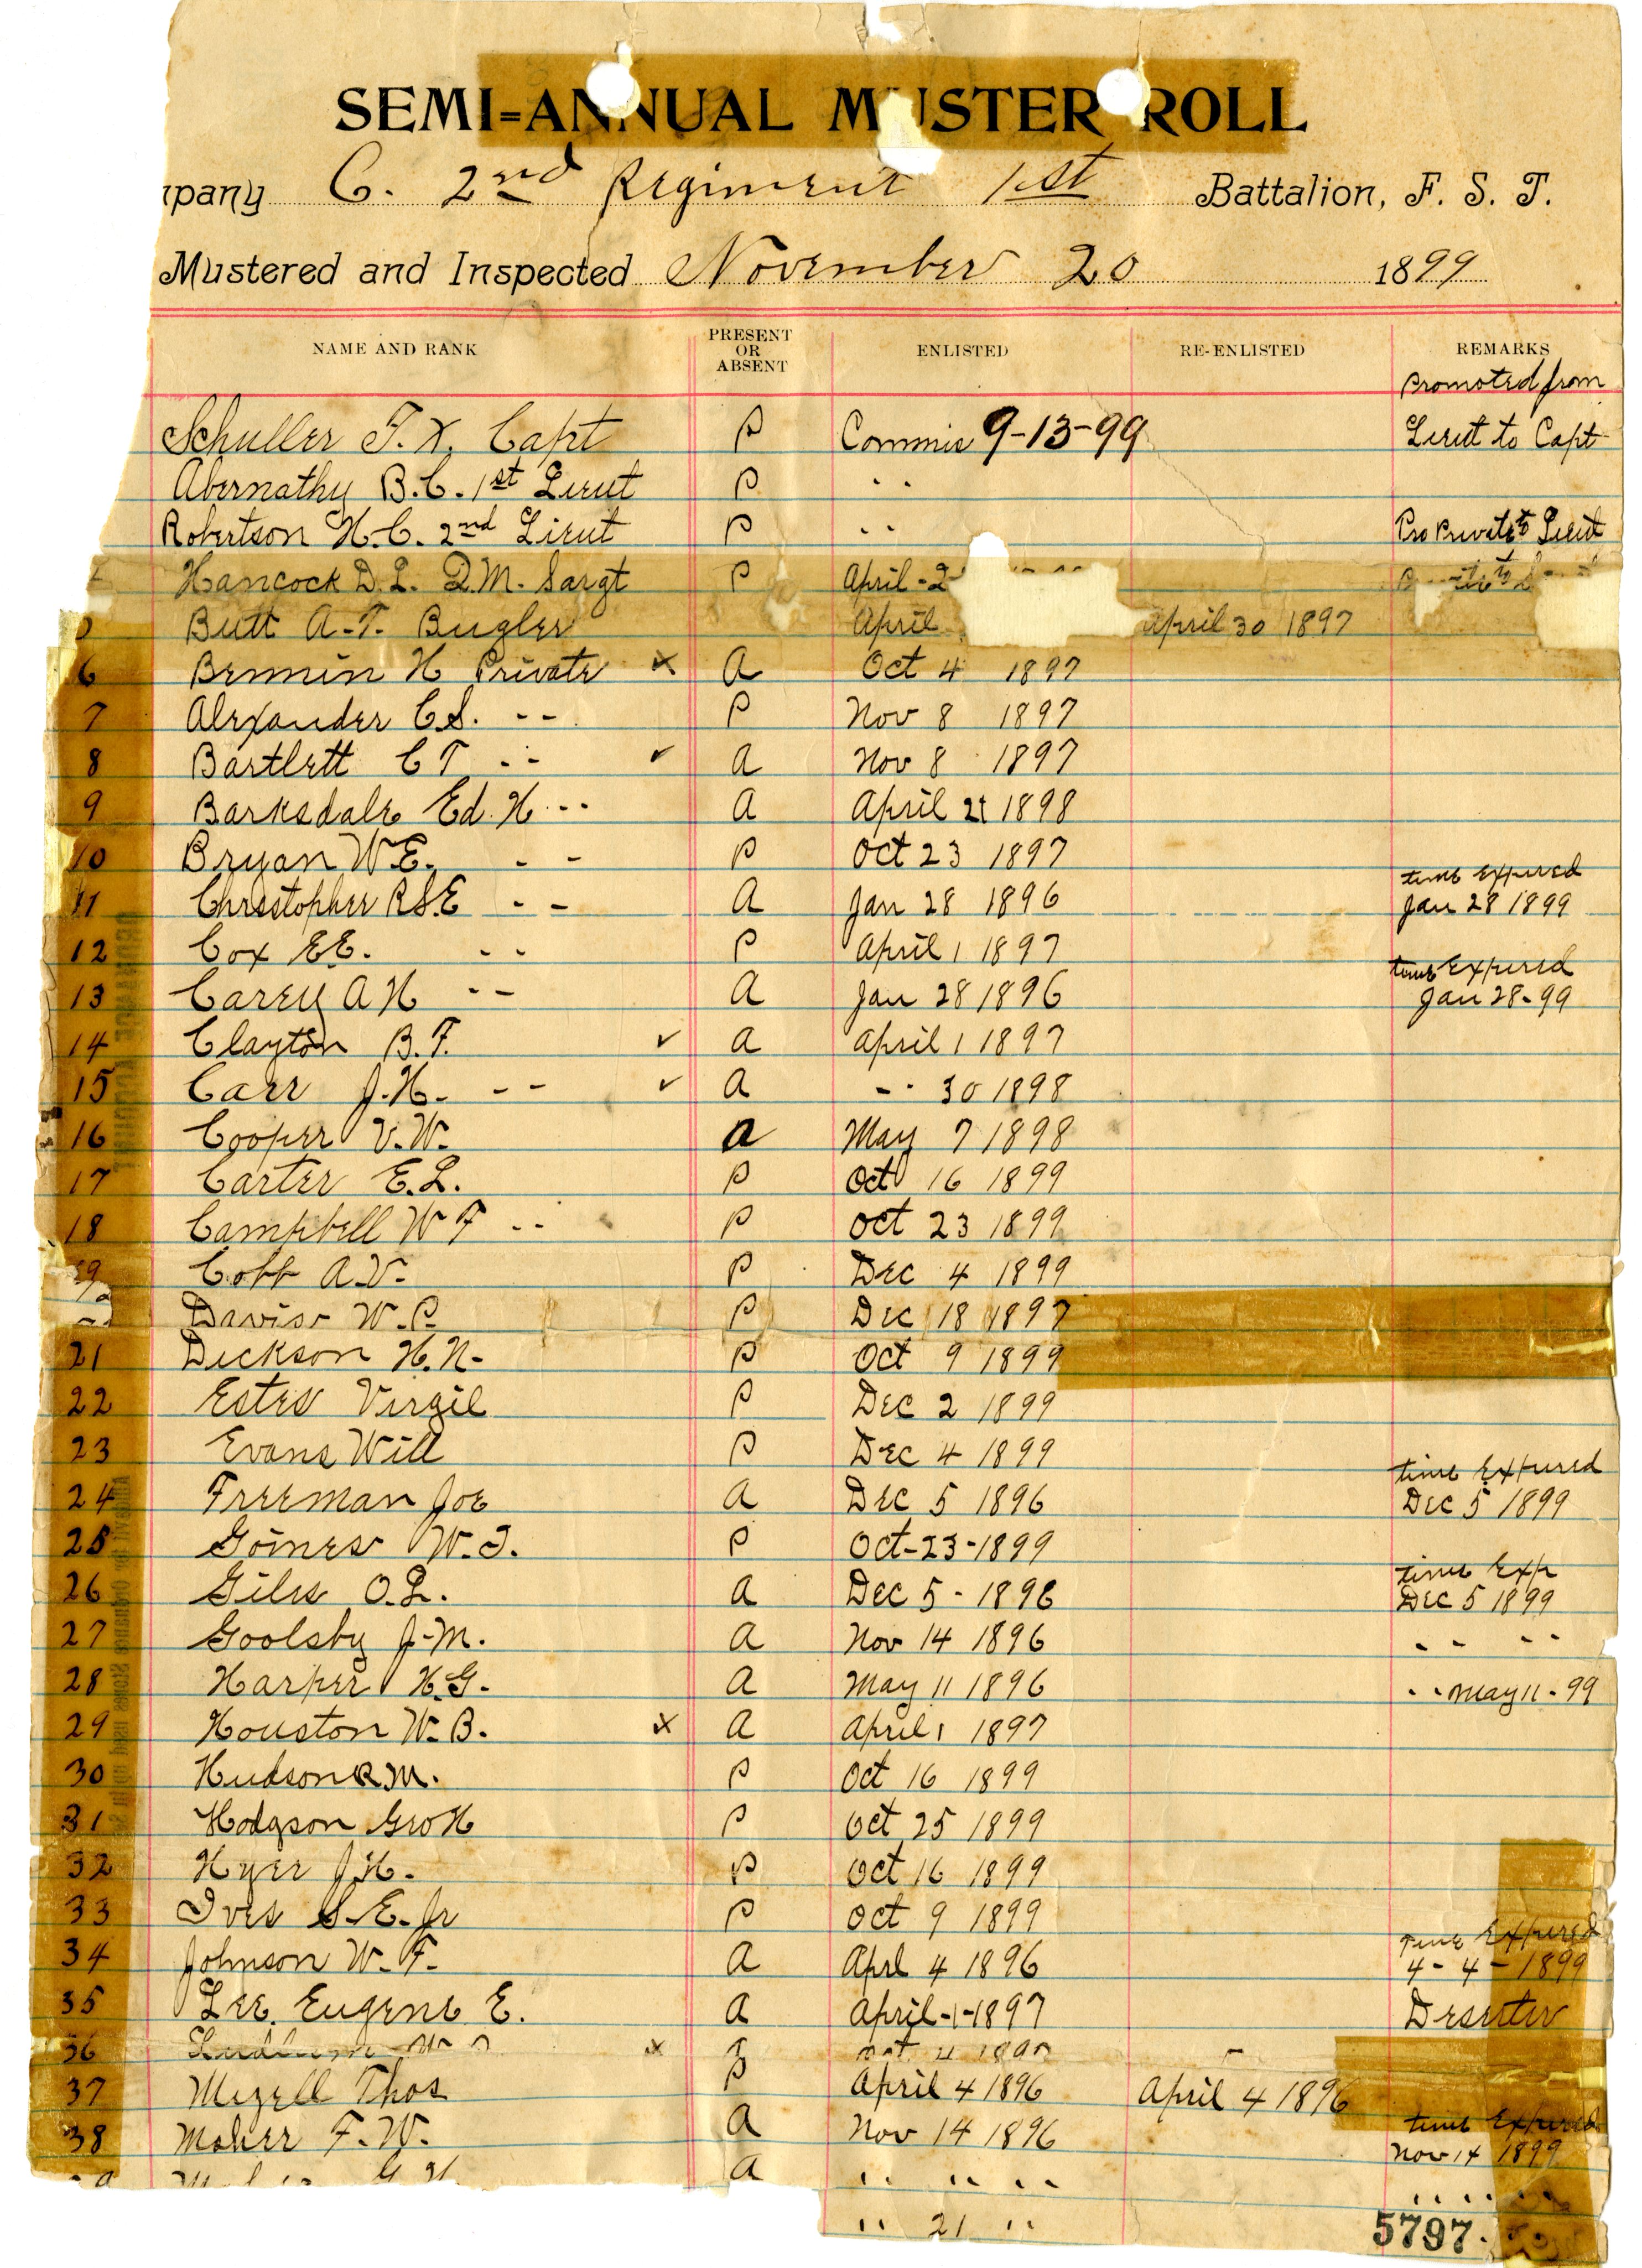 SEMI=ANNUAL MUSTER ROLL
mpany C. 2nd Regiment 1st Battalion, F. S. T.
Mustered and Inspected November 20 1899
NAME AND RANK PRESENT OR ABSENT ENLISTED RE-ENLISTED REMARKS
Promoted from
Schuller F. X. Capt P Commis 9-13-99 Lieut to Capt
Abernathy B. C. 1st Lieut P " "
Robertson H. C. 2nd Lieut P " " Pro Private to Lieut
Hancock D. L. Q.M. Sargt P April - 2
Butt A. T. Bugler April April 30 1897
6 Bennin H Private x A Oct 4 1897
7 Alexander C. S. " " P Nov 8 1897
8 Bartlett C T " " ✓ A Nov 8 1897
9 Barksdale Ed. H " " A April 21 1898
10 Bryan W. E. " " P Oct 23 1897
time Expired
11 Christopher R S. E " " A Jan 28 1896 Jan 28 1899
12 Cox E E. " " P April 1 1897
time Expired
13 Carey A H " " A Jan 28 1896 Jan 28-99
14 Clayton B. F. ✓ A April 1 1897
15 Carr J. H. " " ✓ A " " 30 1898
16 Cooper V. W. A May 7 1898
17 Carter E. L. P Oct 16 1899
18 Campbell W F " " P Oct 23 1899
19 Cobb A. V. P Dec 4 1899
Davis W. P. P Dec 18 1897
21 Dickson H. N. P Oct 9 1899
22 Estes Virgil P Dec 2 1899
23 Evans Will P Dec 4 1899
time Expired
24 Freeman Joe A Dec 5 1896 Dec 5 1899
25 Goines W. I. P Oct-23-1899
time Exp
26 Giles O. L. A Dec 5 - 1896 Dec 5 1899
27 Goolsby J. M. A Nov 14 1896 " " " "
28 Harper H. G. A May 11 1896 " " May 11-99
29 Houston W. B. x A April 1 1897
30 Hudson R M. P Oct 16 1899
31 Hodgson Geo H P Oct 25 1899
32 Hyer J. H. P Oct 16 1899
33 Ives S. E. Jr P Oct 9 1899
Time Expired
34 Johnson W. F. A Aprl 4 1896 4-4-1899
35 Lee. Eugene E. A April-1-1897 Deserter
36 x
37 Mizell Thos P April 4 1896 April 4 1896
time Expired
38 Maher F. W. A Nov 14 1896 Nov 14 1899
A " " " " " " " "
" 21 " 5797.